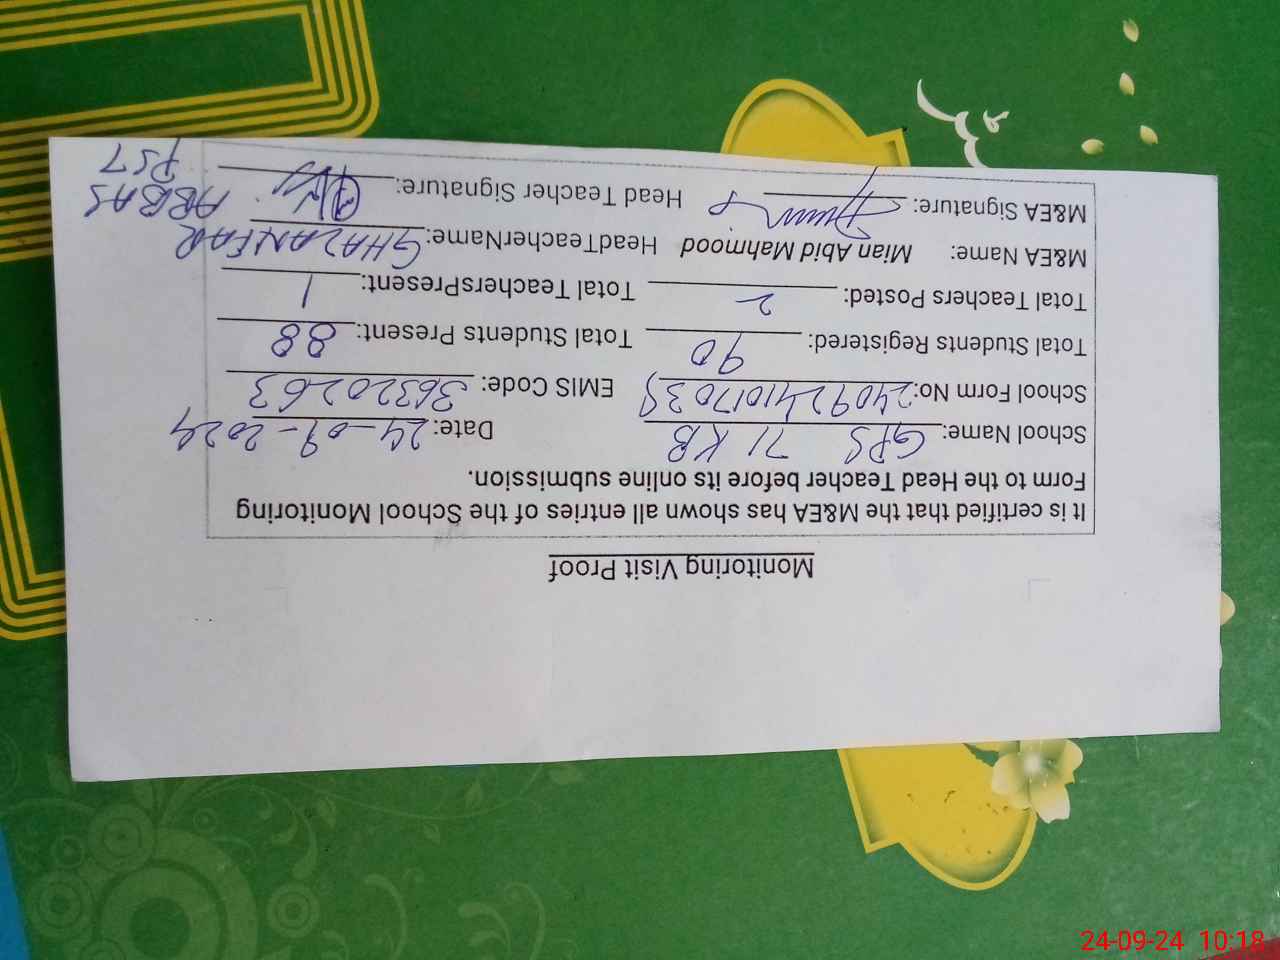 Monitoring Visit Proof
It is certified that the M&EA has shown all entries of the School Monitoring
Form to the Head Teacher before its online submission.
School Name: GPS 71 KB Date: 24-09-2024
School Form No: 240924101703S EMIS Code: 36320263
Total Students Registered: 90 Total Students Present: 88
Total Teachers Posted: 2 Total TeachersPresent: 1
M&EA Name: Mian Abid Mahmood HeadTeacherName: GHAZANFAR
ABBAS
M&EA Signature: Head Teacher Signature:
PST
24-09-24 10:18